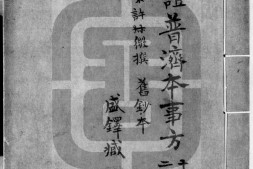 證普濟本事方
宋許叔微撰 舊鈔本
盛鐸藏